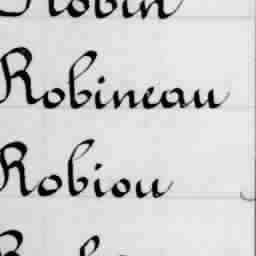 Robin
Robineau
Robiou